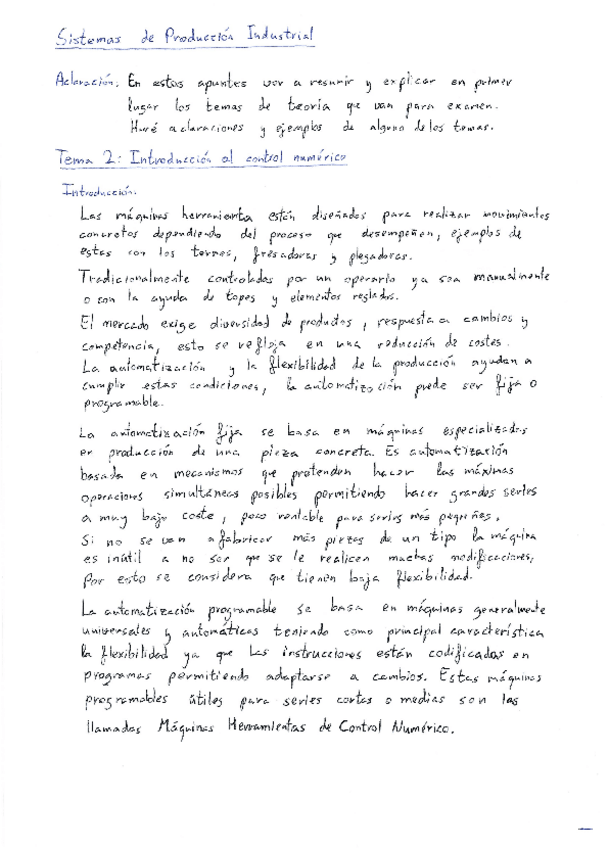 Sistemas de Producción Industrial
Aclaración: En estos apuntes voy a resumir y explicar en primer
lugar los temas de teoría que van para examen.
Haré aclaraciones y ejemplos de alguno de los temas.
Tema 2: Introducción al control numérico
Introducción.
Las máquinas herramienta están diseñadas para realizar movimientos
concretos dependiendo del proceso que desempeñen, ejemplos de
estas son los tornos, fresadoras y plegadoras.
Tradicionalmente controladas por un operario ya sea manualmente
o con la ayuda de topes y elementos reglados.
El mercado exige diversidad de productos, respuesta a cambios y
competencia, esto se refleja en una reducción de costes.
La automatización y la flexibilidad de la producción ayudan a
cumplir estas condiciones, la automatización puede ser fija o
programable.
La automatización fija se basa en máquinas especializadas
en producción de una pieza concreta. Es automatización
basada en mecanismos que pretenden hacer las máximas
operaciones simultáneas posibles permitiendo hacer grandes series
a muy bajo coste, poco rentable para series más pequeñas.
Si no se van a fabricar más piezas de un tipo la máquina
es inútil a no ser que se le realicen muchas modificaciones,
Por esto se considera que tienen baja flexibilidad.
La automatización programable se basa en máquinas generalmente
universales y automáticas teniendo como principal característica
la flexibilidad ya que las instrucciones están codificadas en
programas permitiendo adaptarse a cambios. Estas máquinas
programables útiles para series cortas o medias son las
llamadas Máquinas Herramientas de Control Numérico.